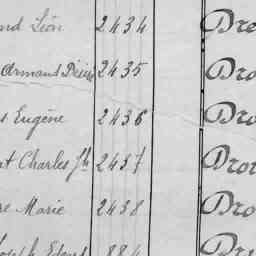 nd Léon 2434 Dre
Armand Désiré 2435 Dro
s Eugène 2436 Dro
t Charles Jh 2437 Dro
re Marie 2438 Dro
Joseph Edouard 884